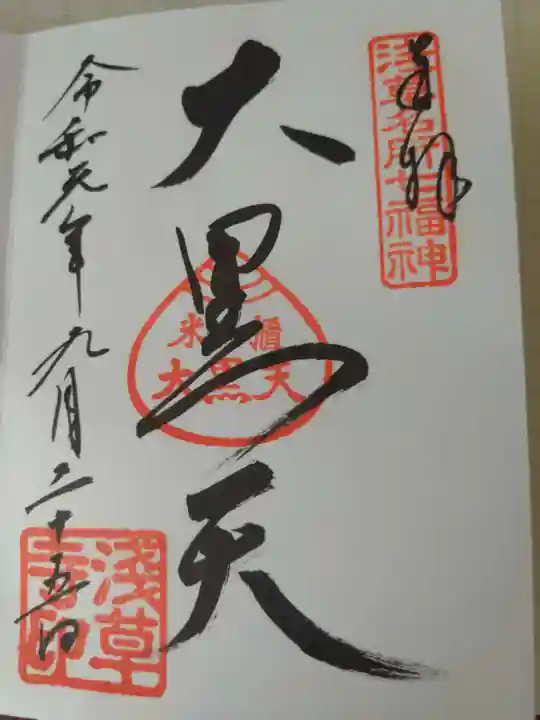 奉拝
浅草名所七福神
大黒天
米櫃
大黒天
令和元年九月二十五日
浅草
寺印